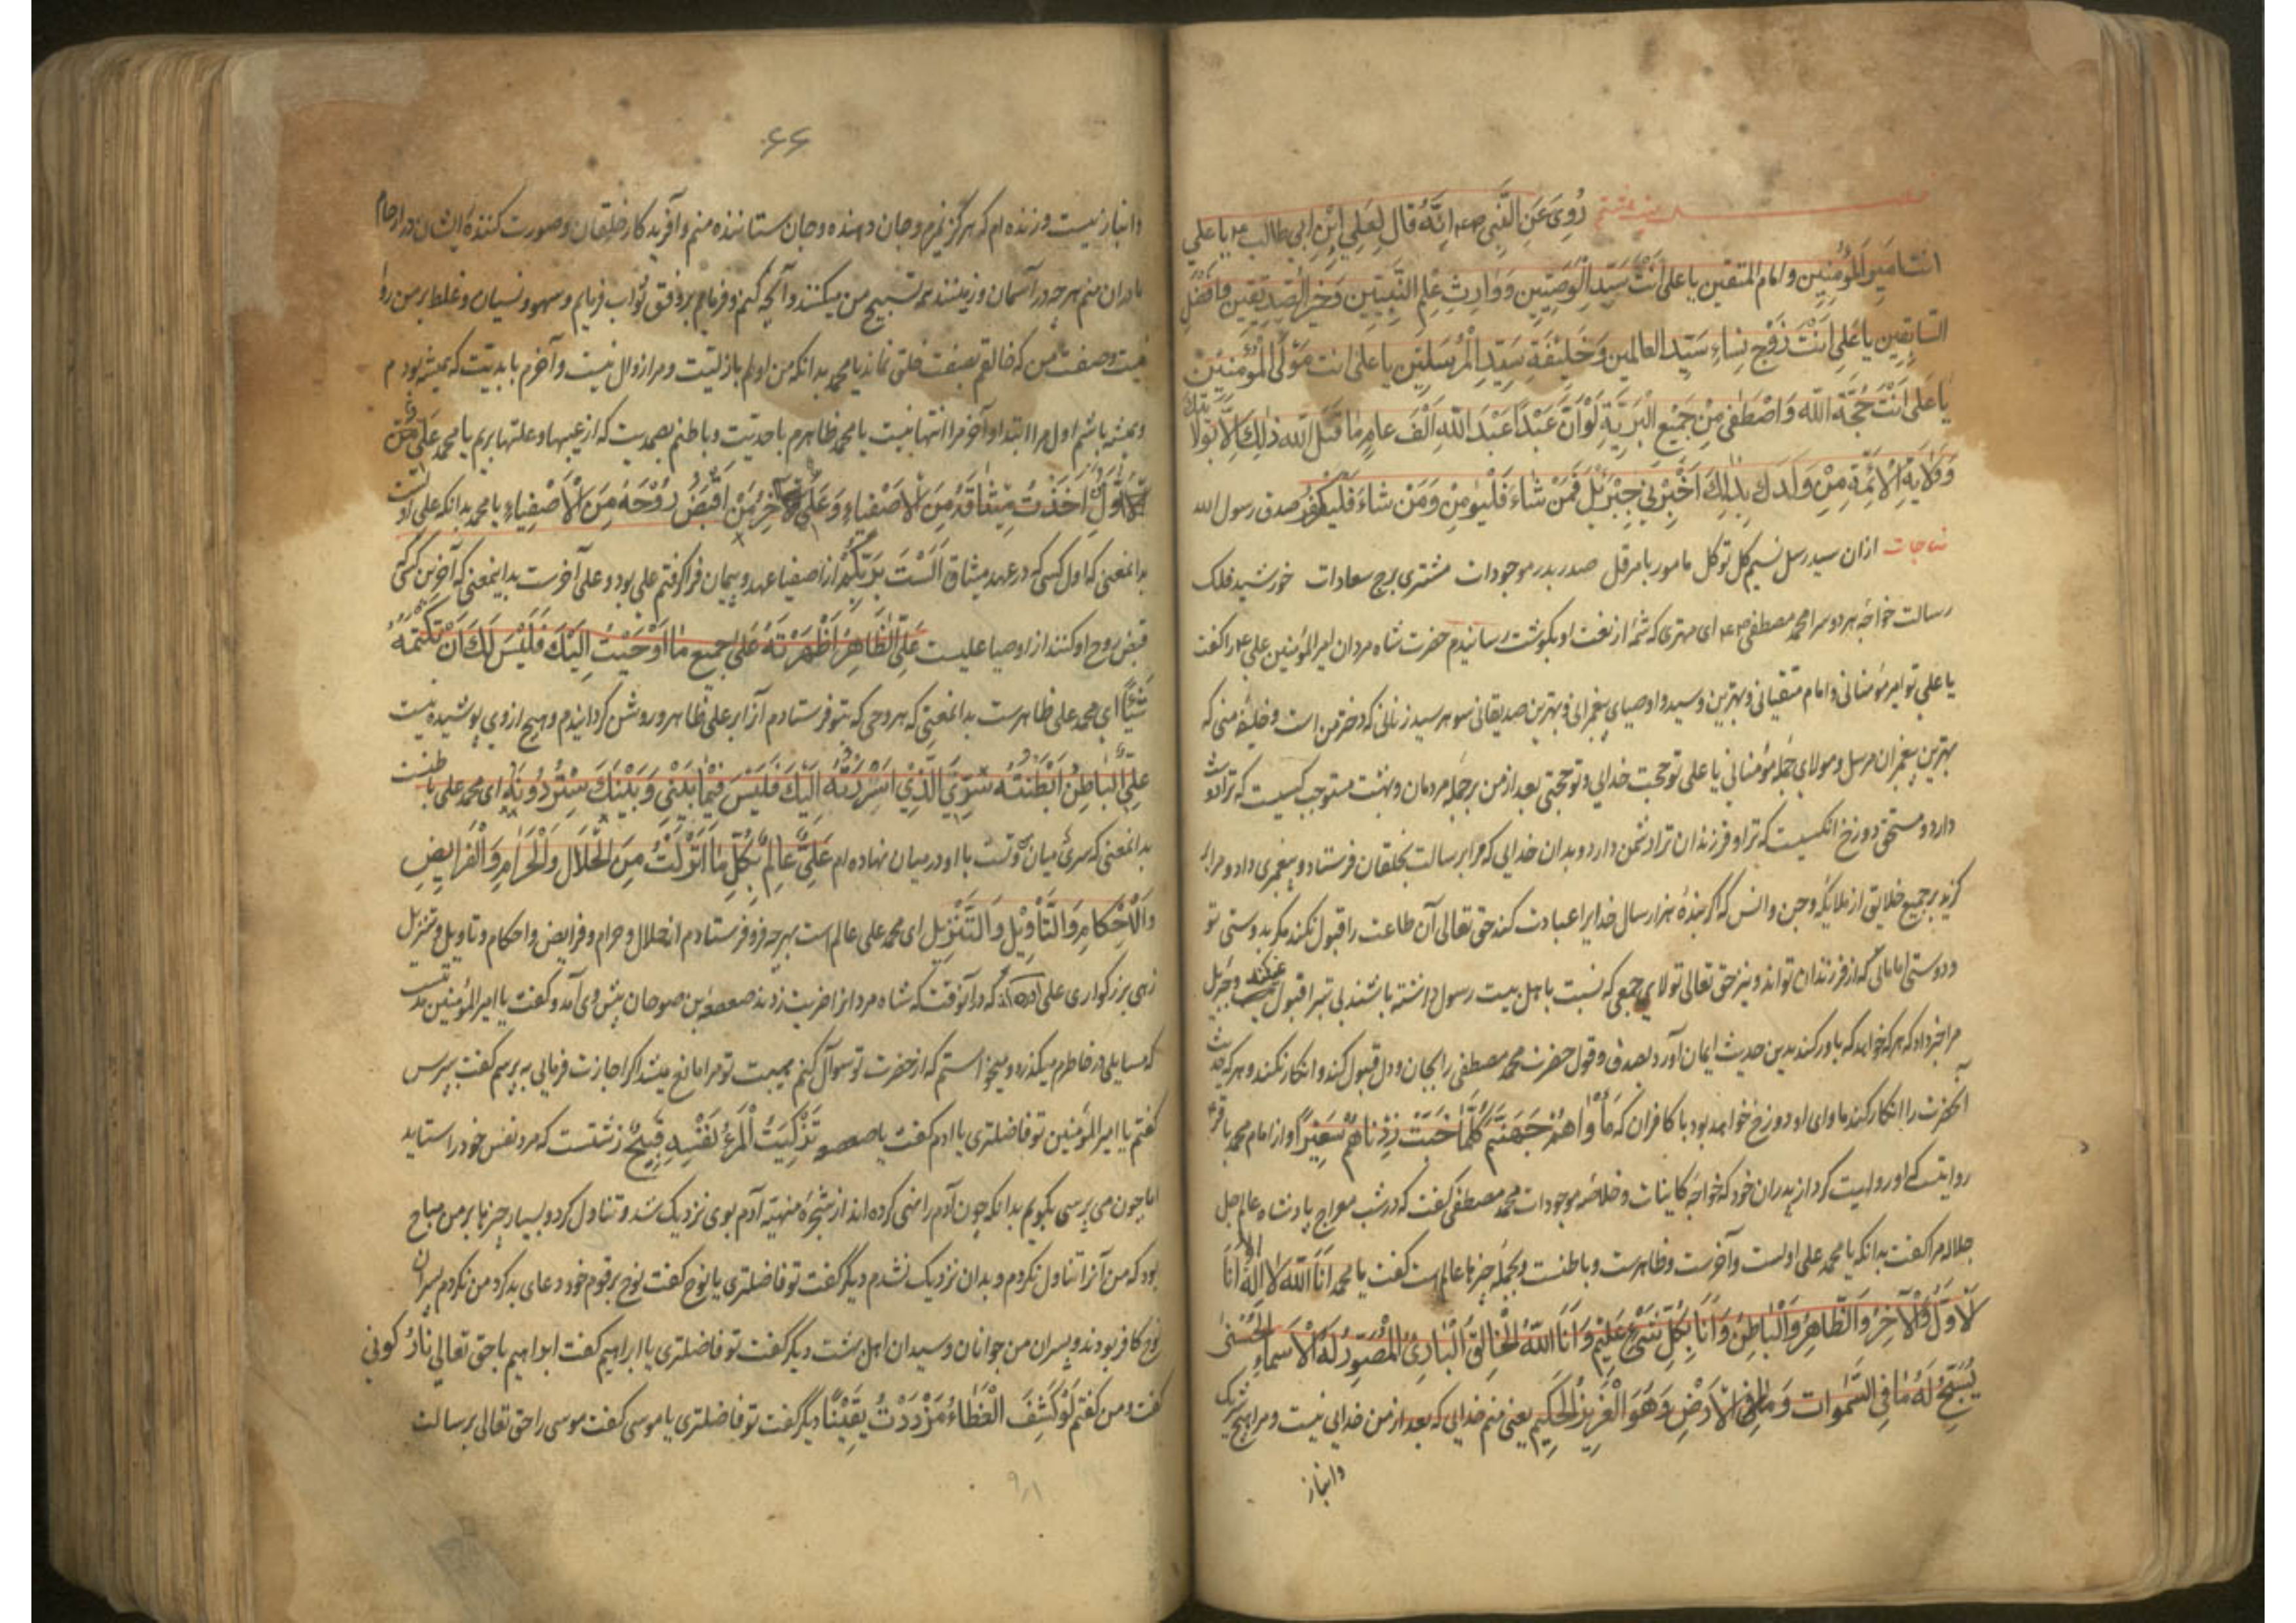 رُوِیَ عَنِ النَّبِی صلعم اِنَّهُ قالَ لِعَلِی ابْنِ اَبی طالب ع یا علی
انت امیر المؤمنین و امام المتقین یا علی انت سید الوصیین و وارث علم النبیین و خیر الصدیقین و افضل
السابقین یا علی انت زوج نساء سید العالمین و خلیفة سید المرسلین یا علی انت مولی المؤمنین
یا علی انت حجة الله و اصطفی من جمیع البریة لو ان عبدا عبد الله الف عام ما قبل الله ذلک الا بولایتک
و ولایة الائمة من ولدک بذلک اخبرنی جبرئیل فمن شاء فلیؤمن و من شاء فلیکفر صدق رسول الله
مناجات ازان سید رسل نسیم کل توکل مامور بامر قل صدر بدر موجودات مشتری برج سعادات خورشید فلک
رسالت خواجه هر دو سرا محمد مصطفی ای مهتری که شمهٔ از نعت او بکوشت رسانیدم حضرت شاه مردان امیر المؤمنین علی ع را کفت
یا علی تو امیر مؤمنانی و امام متقیانی و بهترین و سید و اوصیای پیغمبرانی و بهترین صدیقانی شوهر سید زنانی که دختر من است و خلیفه منی که
بهترین پیغمبران مرسل و مولای جمله مؤمنانی یا علی تو حجت خدایی و تو حجتی بعد از من بر جمله مردمان و بهشت مستوجب کسیست که ترا دوست
دارد و مستحق دوزخ انکسیست که ترا و فرزندان ترا دشمن دارد و بدان خدایی که مرا برسالت بخلقان فرستاد و پیغمبری داد و مرا بر
کزید بر جمیع خلایق از ملایکه و جن و انس که اگر بندهٔ هزار سال خدایرا عبادت کند حق تعالی آن طاعت را قبول نکند مکر بدوستی تو
و دوستی امامانی که از فرزندان تواند و نیز حق تعالی تولای جمعی که نسبت باهل بیت رسول داشته باشند بی تبرا قبول نمیکند و جبرئیل
مرا خبر داد که هر که خواهد که باور کند بدین حدیث ایمان آورد بصدق و قول حضرت محمد مصطفی را بجان و دل قبول کند و انکار نکند و هر که حدیث
آنحضرت را انکار کند ماوای او دوزخ خواهد بود با کافران که مأواهم جهنم کلما خبت زدناهم سعیرا و از امام محمد باقر ع
روایتست که او روایت کرد از پدران خود که خواجه کاینات و خلاصه موجودات محمد مصطفی کفت که در شب معراج پادشاه عالم جل
جلاله مرا کفت بدانکه یا محمد علی اولست و آخرست و ظاهرست و باطنست و بجمله چیزها عالم است کفت یا محمد انا الله لا اله الا انا
الاول والآخر والظاهر والباطن وانا بکل شیء علیم وانا الله الخالق الباریُ المصور له الاسماء الحسنی
یسبح له ما فی السموات وما فی الارض وهو العزیز الحکیم یعنی منم خدایی که بعد از من خدایی نیست و مرا هیچ شریک
و انباز
۶۶
و انباز نیست و زنده ام که هرگز نمیرم و جان دهنده و جان ستاننده منم و آفریدکار خلقان و صورت کنندهٔ ایشان در ارحام
مادران منم هر چه در آسمان و زمینند همه تسبیح من میکنند و آنچه کنم و فرمایم بر وفق ثواب فرمایم و سهو و نسیان و غلط بر من روا
نیست و صفت من که خالقم بصفت خلق نماند یا محمد بدانکه من اولم بازلیت و مرا زوال نیست و آخرم بابدیت که همیشه بودم
و همیشه باشم اول مرا ابتدا و آخر مرا انتها نیست یا محمد ظاهرم باحدیت و باطنم بصمدیت که از عیبها و علتها بریم یا محمد علی
الاول اخذت میثاقه من الاصفیاء و علی الآخر من اقبض روحه من الاصفیاء یا محمد بدانکه علی اولست
بدانمعنی که اول کسی که در عهد میثاق الست بربکم از اصفیا عهد و پیمان فرا کرفتم علی بود و علی آخرست بدانمعنی که آخرین کسی
قبض روح او کنند از اوصیا علیست علی الظاهر اظهرته علی جمیع ما اوحیت الیک فلیس لک ان تکتمه
شیئا ای محمد علی ظاهرست بدانمعنی که هر وحی که بتو فرستادم آنرا بر علی ظاهر و روشن کردانیدم و هیچ از وی پوشیده نیست
علی الباطن ابطنته سری الذی اسررته الیک فلیس فیما بینی و بینک ستر دونه ای محمد علی باطنست
بدانمعنی که سری میان من و تست با او در میان نهاده ام علی عالم بکل ما انزلت من الحلال والحرام والفرایض
والاحکام والتأویل والتنزیل ای محمد علی عالم است بهر چه فرو فرستادم از حلال و حرام و فرایض و احکام و تاویل و تنزیل
زهی بزرکواری علی که در آنوقت که شاه مردانرا ضربت زدند صعصعه بن صوحان پیش وی آمد و کفت یا امیر المؤمنین مدتیست
که مسایلی در خاطرم میکذرد و میخواستم که از حضرت تو سوال کنم هیبت تو مرا مانع میشد اکر اجازت فرمایی بپرسیم کفت بپرس
کفتم یا امیر المؤمنین تو فاضلتری یا ادم کفت یا صعصعه تزکیت المرء لنفسه قبیح زشتست که مرد نفس خود را ستاید
اما چون می پرسی بکویم بدانکه چون آدم را نهی کرده اند از شجرهٔ منهیه آدم بوی نزدیک شد و تناول کرد و بسیار چیزها بر من مباح
بود که من آنرا تناول نکردم و بدان نزدیک نشدم دیگر کفت تو فاضلتری یا نوح کفت نوح بر قوم خود دعای بد کرد و من نکردم پسران
نوح کافر بودند و پسران من جوانان و سیدان اهل بهشت دیگر کفت تو فاضلتری یا ابراهیم کفت ابراهیم با حق تعالی
کفت و من کفتم لو کشف الغطاء مزددت یقینا دیگر کفت تو فاضلتری یا موسی کفت موسی را حق تعالی برسالت